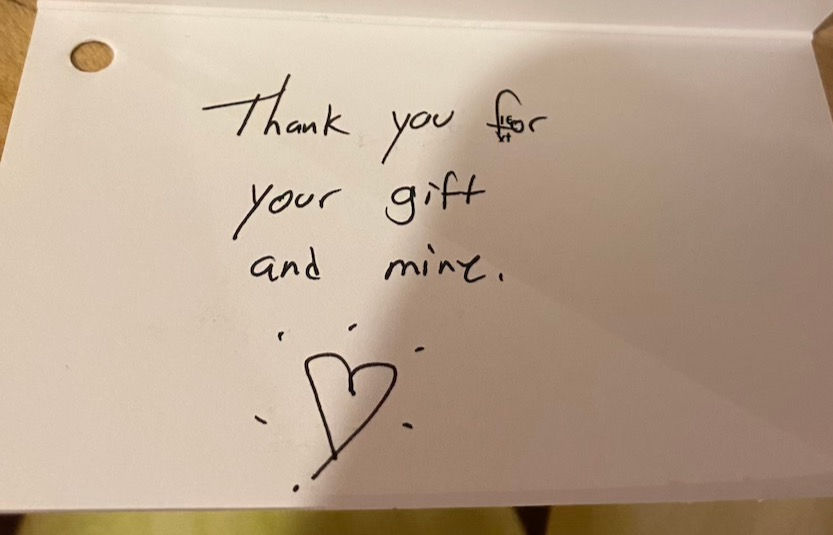 Thank you for
your gift
and mine.